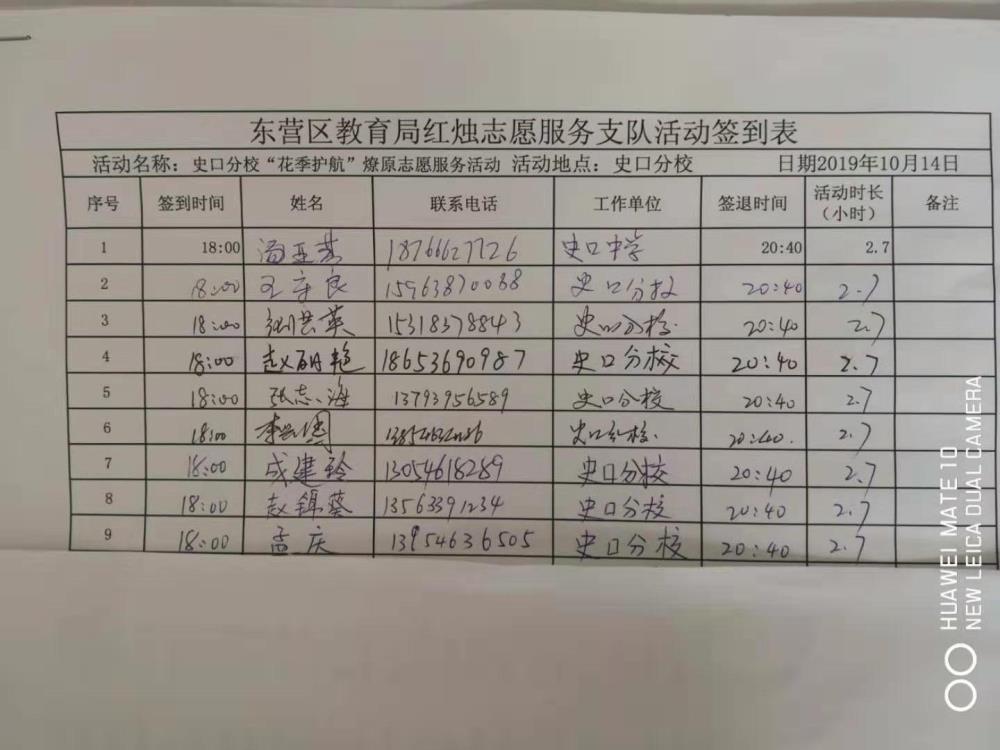 东营区教育局红烛志愿服务支队活动签到表
活动名称：史口分校“花季护航”燎原志愿服务活动 活动地点：史口分校 日期2019年10月14日
序号 签到时间 姓名 联系电话 工作单位 签退时间 活动时长（小时） 备注
1 18:00 汤亚燕 18766627726 史口中学 20:40 2.7
2 18:00 王良 15963870088 史口分校 20:40 2.7
3 18:00 洪英 15318378843 史口分校. 20:40 2.7
4 18:00 赵丽艳 18653690987 史口分校 20:40 2.7
5 18:00 张志海 13793956589 史口分校 20:40 2.7
6 18:00 李 史口分校. 20:40. 2.7
7 18:00 成建玲 13054618289 史口分校 20:40 2.7
8 18:00 赵锦葵 13563391234 史口分校 20:40 2.7
9 18:00 孟庆 13954636505 史口分校 20:40 2.7
HUAWEI MATE 10
NEW LEICA DUAL CAMERA